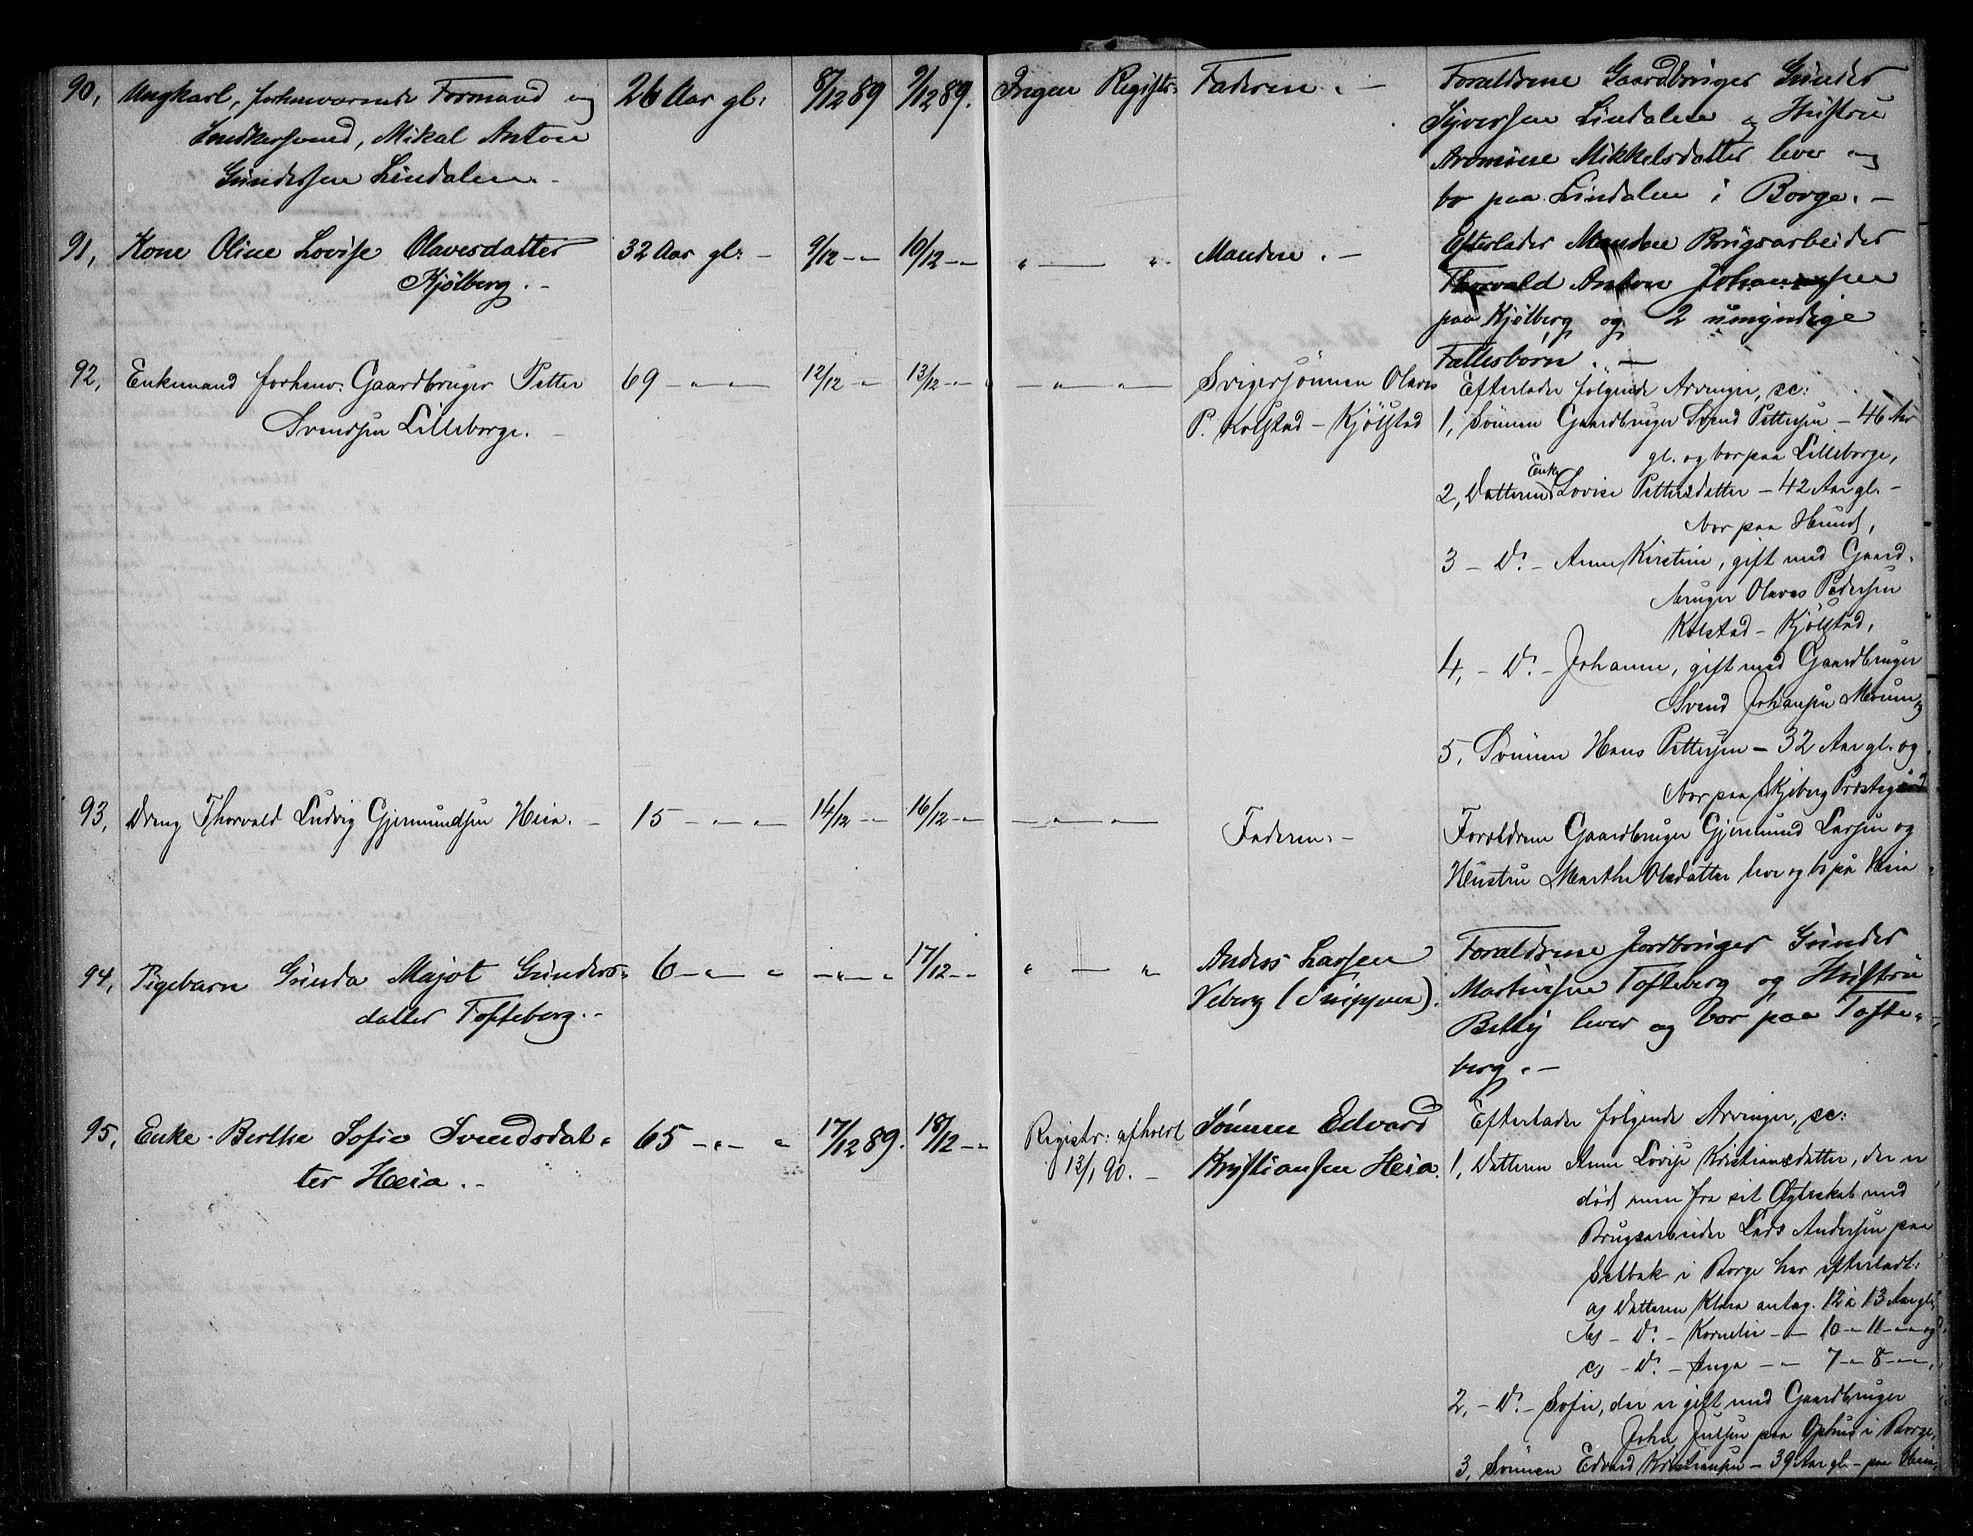 90, Ungkarl, forhenværende Formand og 26 Aar gl: 8/12 89 9/12 89. Ingen Registr: Faderen. – Forældrene Gaardbruger Günder
Snedkersvend, Mikal Anton Syversen Lindalen og Hustru
Gündersen Lindalen. – Mikkelsdatter lever og
bo paa Lindalen i Borge. –
91, Kone Oline Lovise Olavesdatter 32 Aar gl: – 9/12 – " 10/12 – " " — " Manden. – Efterlader Manden Brugsarbeider
Kjølberg. – Thorvald Anton Johannesen
paa Kjølberg og 2 umyndige
Fællesbørn. –
92, Enkemand forhenv. Gaardbruger Petter 69 – " – 12/12 – " 13/12 – " – " – Svigersønnen Olaves Efterlader følgende Arvinger, sc:
Svendsen Lilleborge. – P. Kolstad – Kjølstad 1, Sønnen Gaardbruger Svend Pettersen – 46 Aar
gl. og bor paa Lilleborge,
2, Datteren Enke Lovise Pettersdatter – 42 Aar gl. –
bor paa Hunds,
3 – Do. – Anne Kirstine, gift med Gaard-
bruger Olaves Pedersen
Kolstad – Kjølstad,
4, – Do. – Johanne, gift med Gaardbruger
Svend Johansen Moum,
5, Sønnen Hans Pettersen – 32 Aar gl. og
bor paa Skjeberg Præstegaard
93, Dreng Thorvald Ludvig Gjermundsen Heia. – 15 – " – " 14/12 – " 16/12 – " – " – Faderen. – Forældrene Gaardbruger Gjermund Larsen og
Hustru Marthe Olsdatter leve og bo på Heia
94, Pigebarn Günda Majot Günders- 6 – " – " – " – " 17/12 – " " — " Anders Larsen Forældrene Jordbruger Günder
datter Tofteberg. – Veberg (Snippen). Martinsen Tofteberg og Hustru
Betty lever og bor paa Tofte-
berg. –
95, Enke Berthe Sofie Svendsdat- 65 – " – " 17/12 89. 18/12 – " Registr: afholdt Sønnen Edvard Efterlader følgende Arvinger, sc:
ter Heia. – 13/1 90. – Kristiansen Heia. 1, Datteren Anne Lovise Kristiansdatter, der er
død men fra sit Ægteskab med
Brugsarbeider Lars Andersen paa
Selbak i Borge har efterladt:
a) Datteren Klara antag. 12 à 13 Aar gl.
b) – Do. – Kornelie – " – 10 – " 11 – " – og
c) – Do. – Inga – " 7 – " 8 – " –,
2, – Do. – Sofie, der er gift med Gaardbruger
John Julsen paa Ophus i Borge,
3, Sønnen Edvard Kristiansen – 39 Aar gl – paa Heia,